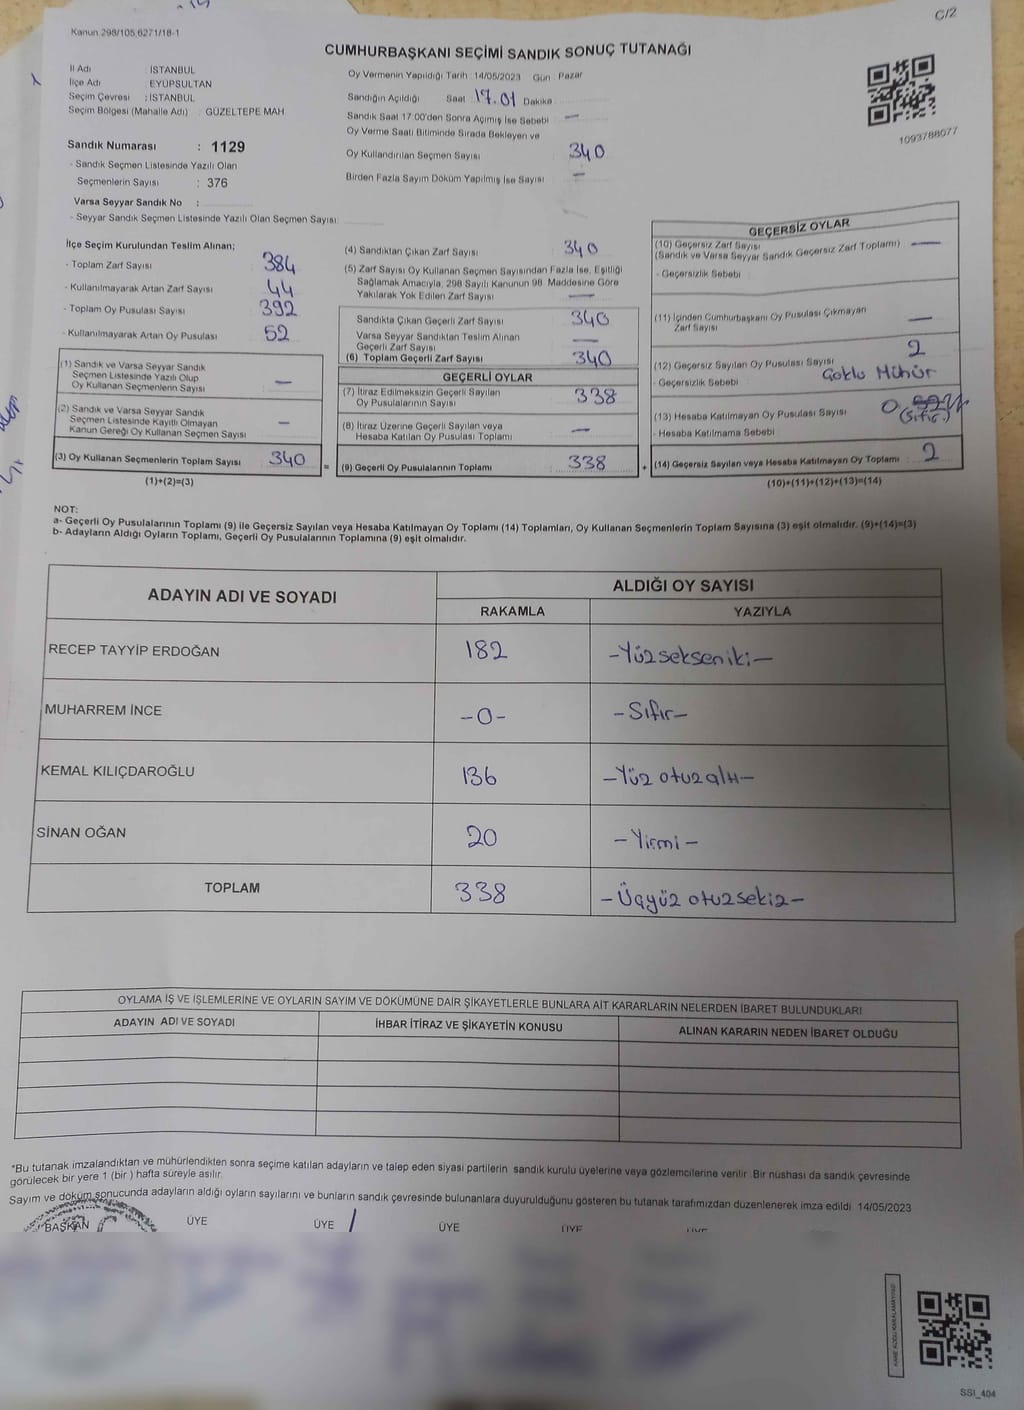 C/2
Kanun 298/105,6271/18-1
CUMHURBAŞKANI SEÇİMİ SANDIK SONUÇ TUTANAĞI
İl Adı : İSTANBUL
İlçe Adı : EYÜPSULTAN
Seçim Çevresi : İSTANBUL
Seçim Bölgesi (Mahalle Adı) : GÜZELTEPE MAH
Sandık Numarası : 1129
- Sandık Seçmen Listesinde Yazılı Olan
Seçmenlerin Sayısı : 376
Varsa Seyyar Sandık No :
- Seyyar Sandık Seçmen Listesinde Yazılı Olan Seçmen Sayısı:
Oy Vermenin Yapıldığı Tarih : 14/05/2023 Gün : Pazar
Sandığın Açıldığı Saat 17.01 Dakika
Sandık Saat 17:00'den Sonra Açımış İse Sebebi —
Oy Verme Saati Bitiminde Sırada Bekleyen ve
Oy Kullandırılan Seçmen Sayısı 340
Birden Fazla Sayım Döküm Yapılmış İse Sayısı —
1093788077
İlçe Seçim Kurulundan Teslim Alınan;
- Toplam Zarf Sayısı 384
- Kullanılmayarak Artan Zarf Sayısı 44
- Toplam Oy Pusulası Sayısı 392
- Kullanılmayarak Artan Oy Pusulası 52
(1) Sandık ve Varsa Seyyar Sandık
Seçmen Listesinde Yazılı Olup
Oy Kullanan Seçmenlerin Sayısı —
(2) Sandık ve Varsa Seyyar Sandık
Seçmen Listesinde Kayıtlı Olmayan
Kanun Gereği Oy Kullanan Seçmen Sayısı —
(3) Oy Kullanan Seçmenlerin Toplam Sayısı 340
(1)+(2)=(3)
(4) Sandıktan Çıkan Zarf Sayısı 340
(5) Zarf Sayısı Oy Kullanan Seçmen Sayısından Fazla İse, Eşitliği
Sağlamak Amacıyla, 298 Sayılı Kanunun 98. Maddesine Göre
Yakılarak Yok Edilen Zarf Sayısı —
Sandıkta Çıkan Geçerli Zarf Sayısı 340
Varsa Seyyar Sandıktan Teslim Alınan
Geçerli Zarf Sayısı —
(6) Toplam Geçerli Zarf Sayısı 340
GEÇERLİ OYLAR
(7) İtiraz Edilmeksizin Geçerli Sayılan
Oy Pusulalarının Sayısı 338
(8) İtiraz Üzerine Geçerli Sayılan veya
Hesaba Katılan Oy Pusulası Toplamı —
= (9) Geçerli Oy Pusulalarının Toplamı 338 +
GEÇERSİZ OYLAR
(10) Geçersiz Zarf Sayısı —
(Sandık ve Varsa Seyyar Sandık Geçersiz Zarf Toplamı)
- Geçersizlik Sebebi
(11) İçinden Cumhurbaşkanı Oy Pusulası Çıkmayan
Zarf Sayısı —
(12) Geçersiz Sayılan Oy Pusulası Sayısı 2
- Geçersizlik Sebebi Çoklu Mühür
(13) Hesaba Katılmayan Oy Pusulası Sayısı 0 (Sıfır)
- Hesaba Katılmama Sebebi
(14) Geçersiz Sayılan veya Hesaba Katılmayan Oy Toplamı 2
(10)+(11)+(12)+(13)=(14)
NOT:
a- Geçerli Oy Pusulalarının Toplamı (9) ile Geçersiz Sayılan veya Hesaba Katılmayan Oy Toplamı (14) Toplamları, Oy Kullanan Seçmenlerin Toplam Sayısına (3) eşit olmalıdır. (9)+(14)=(3)
b- Adayların Aldığı Oyların Toplamı, Geçerli Oy Pusulalarının Toplamına (9) eşit olmalıdır.
ADAYIN ADI VE SOYADI ALDIĞI OY SAYISI
RAKAMLA YAZIYLA
RECEP TAYYİP ERDOĞAN 182 -Yüzsekseniki-
MUHARREM İNCE -0- -Sıfır-
KEMAL KILIÇDAROĞLU 136 -Yüz otuzaltı-
SİNAN OĞAN 20 -Yirmi-
TOPLAM 338 -Üçyüz otuzsekiz-
OYLAMA İŞ VE İŞLEMLERİNE VE OYLARIN SAYIM VE DÖKÜMÜNE DAİR ŞİKAYETLERLE BUNLARA AİT KARARLARIN NELERDEN İBARET BULUNDUKLARI
ADAYIN ADI VE SOYADI İHBAR İTİRAZ VE ŞİKAYETİN KONUSU ALINAN KARARIN NEDEN İBARET OLDUĞU
*Bu tutanak imzalandıktan ve mühürlendikten sonra seçime katılan adayların ve talep eden siyasi partilerin sandık kurulu üyelerine veya gözlemcilerine verilir. Bir nüshası da sandık çevresinde
görülecek bir yere 1 (bir) hafta süreyle asılır.
Sayım ve döküm sonucunda adayların aldığı oyların sayılarını ve bunların sandık çevresinde bulunanlara duyurulduğunu gösteren bu tutanak tarafımızdan düzenlenerek imza edildi 14/05/2023
BAŞKAN ÜYE ÜYE ÜYE ÜYE ÜYE
KARE KODU KARALAMAYINIZ!
SSI_404